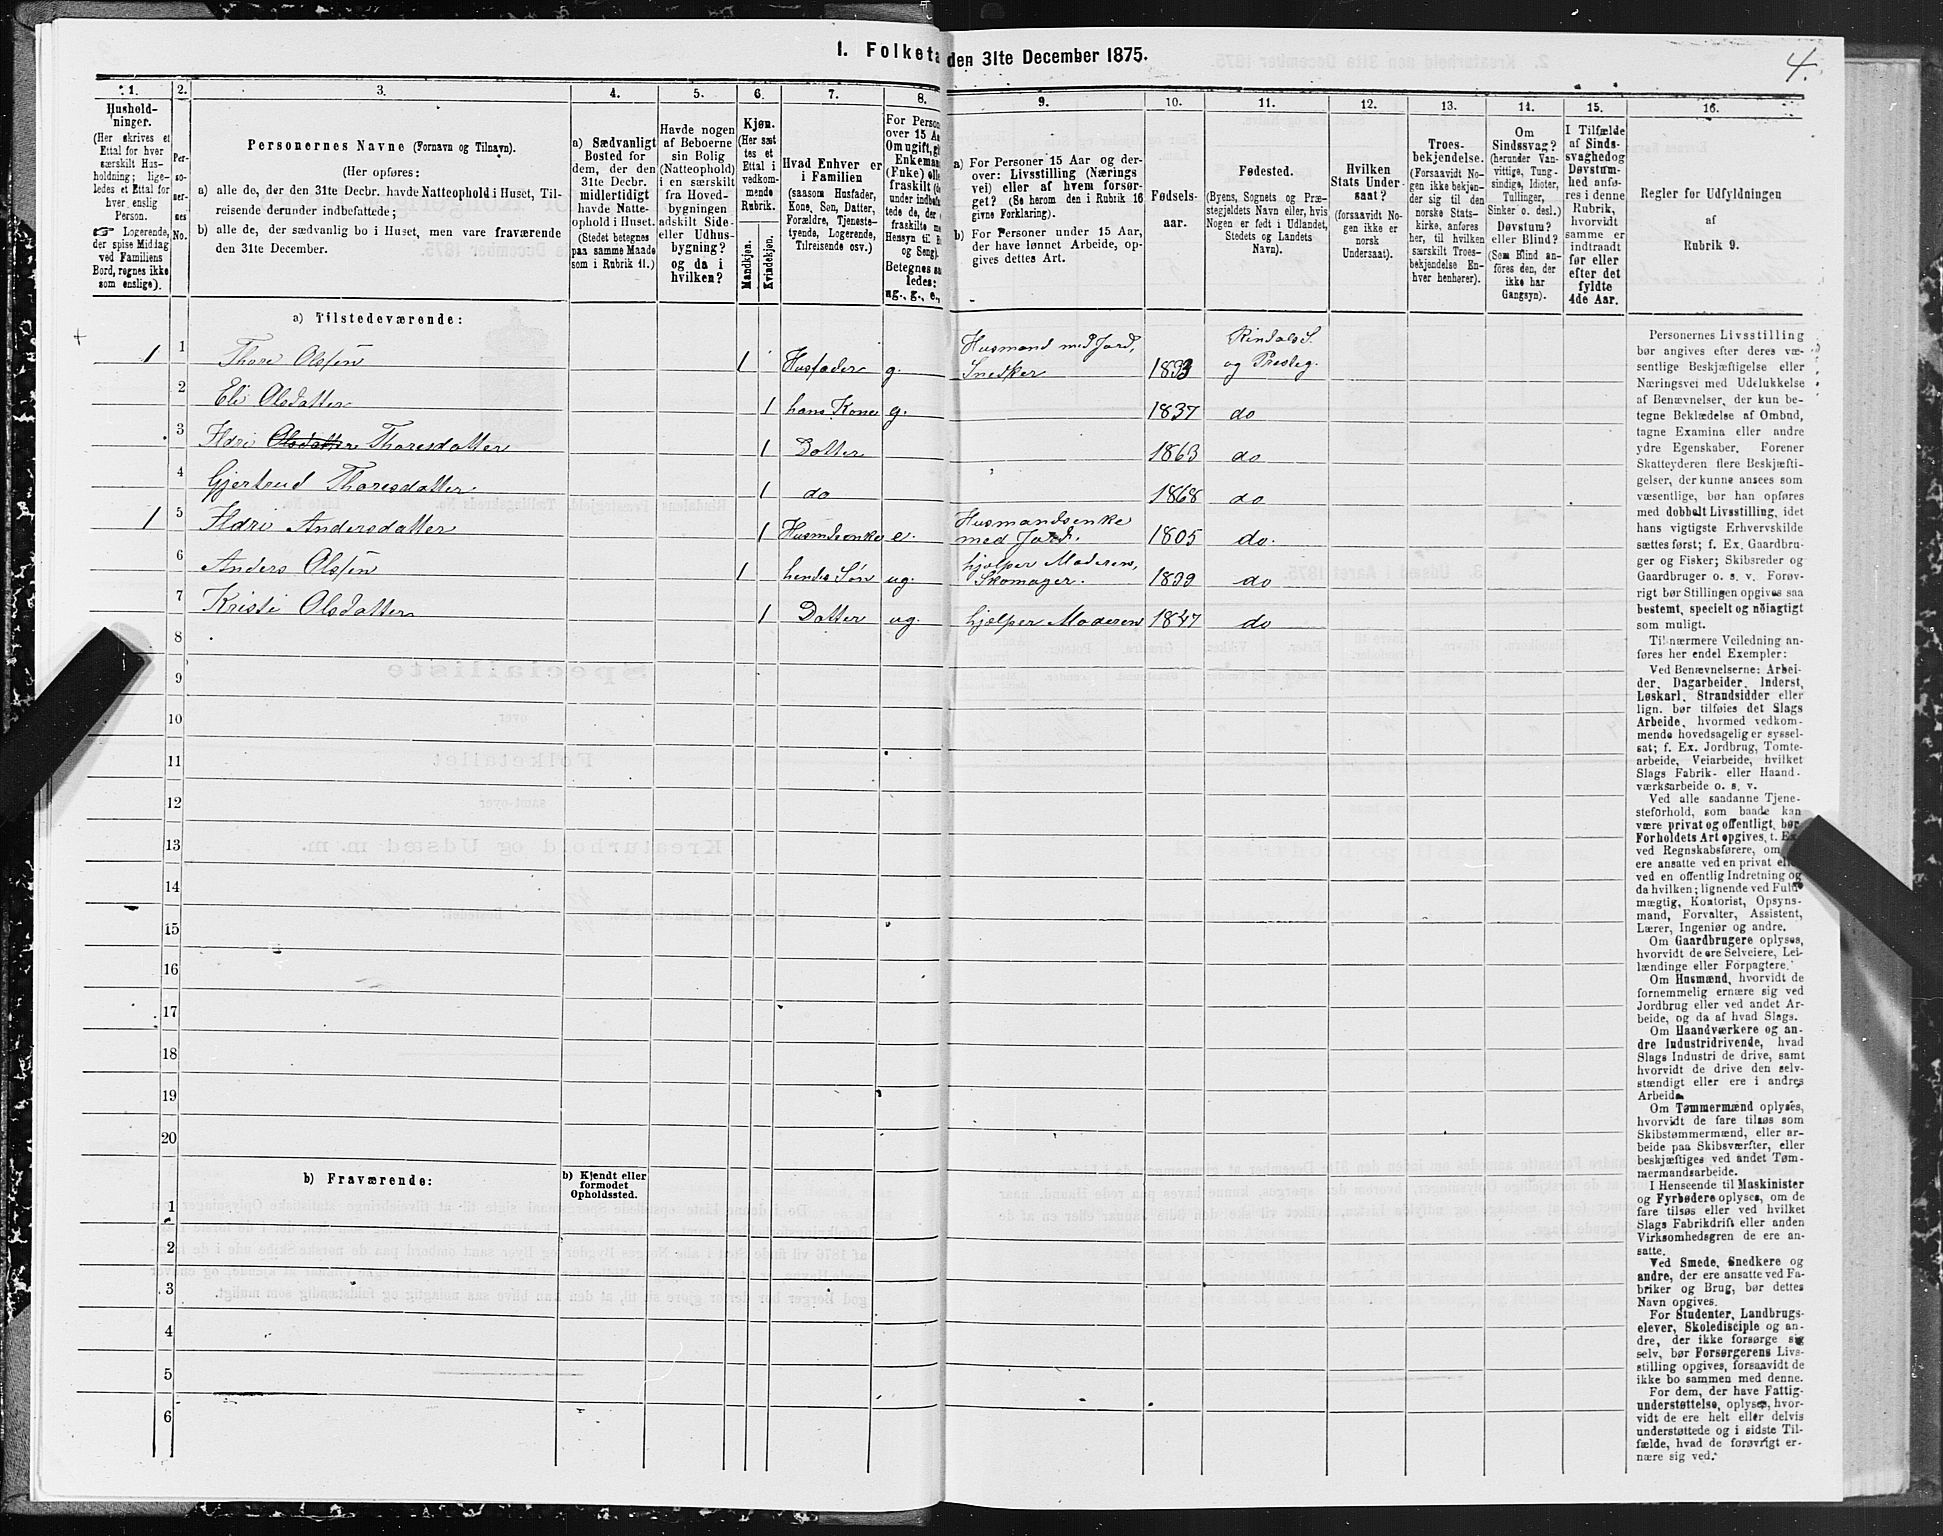 1. Folketa
den 31te December 1875.
4.
1.
Hushold-
ninger.
(Her skrives et
Ettal for hver
særskilt Hus-
holdning; lige-
ledes et Ettal for
hver enslig
Person.
☞ Logerende,
der spise Middag
ved Familiens
Bord, regnes ikke
som enslige).
2.
Per-
so-
ner-
nes
No.
3.
Personernes Navne (Fornavn og Tilnavn).
(Her opføres:
a) alle de, der den 31te Decbr. havde Natteophold i Huset, Til-
reisende derunder indbefattede;
b) alle de, der sædvanlig bo i Huset, men vare fraværende
den 31te December.
4.
a) Sædvanligt
Bosted for
dem, der den
31te Decbr.
midlertidigt
havde Natte-
ophold i Huset.
(Stedet betegnes
paa samme Maade
som i Rubrik 11.)
5.
Havde nogen
af Beboerne
sin Bolig
(Natteophold)
i en særskilt
fra Hoved-
bygningen
adskilt Side-
eller Udhus-
bygning?
og da i
hvilken?
6.
Kjøn.
(Her sæt
tes et
Ettal i
vedkom-
mende
Rubrik.
Mandkjøn.
Kvindekjøn.
7.
Hvad Enhver er
i Familien
(saasom Husfader,
Kone, Søn, Datter,
Forældre, Tjeneste-
tyende, Logerende,
Tilreisende osv.)
8.
For Person
over 15 Aa
Om ugift, gi
Enkeman
(Fuke) elle
fraskilt (
under indbefat
tede de, der
fraskilte m
Hensyn til
og Seng).
Betegnes sa
ledes:
ug., g., e.,
9.
a) For Personer 15 Aar og der-
over: Livsstilling (Nærings
vei) eller af hvem forsør-
get? (Se herom den i Rubrik 16
givne Forklaring).
b) For Personer under 15 Aar,
der have lønnet Arbeide, op-
gives dettes Art.
10.
Fødsels-
aar.
11.
Fødested.
(Byens, Sognets og Præ-
stegjeldets Navn eller, hvis
Nogen er født i Udlandet,
Stedets og Landets
Navn).
12.
Hvilken
Stats Under-
saat?
(forsaavidt No-
gen ikke er
norsk
Undersaat).
13.
Troes-
bekjendelse.
(Forsaavidt No-
gen ikke bekjen-
der sig til den
norske Stats-
kirke, anføres
her, til hvilken
særskilt Troes-
bekjendelse En-
hver henhører).
14.
Om
Sindssvag?
(herunder Van-
vittige, Tung-
sindige, Idioter,
Tullinger,
Sinker o. desl.)
Døvstum?
eller Blind?
(Som Blind an-
føres den, der
ikke har
Gangsyn).
15.
I Tilfælde
af Sinds-
svaghed og
Døvstum-
hed anfø-
res i denne
Rubrik,
hvorvidt
samme er
indtraadt
før eller
efter det
fyldte
4de Aar.
16.
Regler for Udfyldningen
af
Rubrik 9.
a) Tilstedeværende:
1 1 Thore Olsen 1 Husfader g. Husmand med Jord, Snedker 1833 Rindals S. og Præsteg.
2 Eli Olsdatter 1 hans Kone g. 1837 do
3 Ildri Olsdatter Thoresdatter 1 Datter 1863 do
4 Gjertrud Thoresdatter 1 do 1868 do
1 5 Ildri Andersdatter 1 Husmdsenke e. Husmandsenke med Jord. 1805 do.
6 Anders Olsen 1 hendes Søn ug. hjelper Moderen, Skomager. 1839 do
7 Kristi Olsdatter 1 Datter ug. hjelper Moderen 1847 do
8
9
10
11
12
13
14
15
16
17
18
19
20
b) Fraværende:
b) Kjendt eller
formodet
Opholdssted.
1
2
3
4
5
6
Personernes Livsstilling
bør angives efter deres væ-
sentlige Beskjæftigelse eller
Næringsvei med Udelukkelse
af Benævnelser, der kun be-
tegne Beklædelse af Ombud,
tagne Examina eller andre
ydre Egenskaber. Forener
Skatteyderen flere Beskjæfti-
gelser, der kunne ansees som
væsentlige, bør han opføres
med dobbelt Livsstilling, idet
hans vigtigste Erhvervskilde
sættes først; f. Ex. Gaardbru-
ger og Fisker; Skibsreder og
Gaardbruger o. s. v. Forøv-
rigt bør Stillingen opgives saa
bestemt, specielt og nøiagtigt
som muligt.
Til nærmere Veiledning an-
føres her endel Exempler:
Ved Benævnelserne: Arbei-
der, Dagarbeider, Inderst,
Løskarl, Strandsidder eller
lign. bør tilføies det Slags
Arbeide, hvormed vedkom-
mende hovedsagelig er syssel-
sat; f. Ex. Jordbrug, Tomte-
arbeide, Veiarbeide, hvilket
Slags Fabrik- eller Haand-
værksarbeide o. s. v.
Ved alle saadanne Tjene-
steforhold, som baade kan
være privat og offentligt, bør
Forholdets Art opgives, t. Ex.
ved Regnskabsførere, om
ere ansatte ved en privat eller
ved en offentlig Indretning og
da hvilken; lignende ved Fuld-
mægtig, Kontorist, Opsyns-
mand, Forvalter, Assistent,
Lærer, Ingeniør og andre.
Om Gaardbrugere oplyses,
hvorvidt de ere Selveiere, Lei-
lændinge eller Forpagtere.
Om Husmænd, hvorvidt de
fornemmelig ernære sig ved
Jordbrug eller ved andet Ar-
beide, og da af hvad Slags.
Om Haandværkere og an-
dre Industridrivende, hvad
Slags Industri de drive, samt
hvorvidt de drive den selv-
stændigt eller ere i andres
Arbeide.
Om Tømmermænd oplyses,
hvorvidt de fare tilsøs som
Skibstømmermænd, eller ar-
beide paa Skibsværfter, eller
beskjæftiges ved andet Tøm-
mermandsarbeide.
I Henseende til Maskinister
og Fyrbødere oplyses, om de
fare tilsøs eller ved hvilket
Slags Fabrikdrift eller anden
Virksomhedsgren de ere an-
satte.
Ved Smede, Snedkere og
andre, der ere ansatte ved Fa-
briker og Brug, bør dettes
Navn opgives.
For Studenter, Landbrugs-
elever, Skoledisciple og an-
dre, der ikke forsørge sig
selv, bør Forsørgerens Livs-
stilling opgives, forsaavidt de
ikke bo sammen med denne.
For dem, der have Fattig-
understøttelse, oplyses, hvor-
vidt de ere helt eller delvis
understøttede og i sidste Til-
fælde, hvad de forøvrigt er-
nære sig ved.